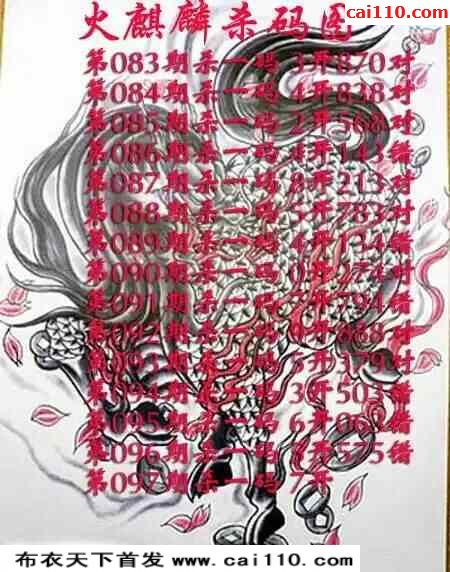 www.
cai110.com
火麒麟杀码图
第083期杀一码 3开870对
第084期杀一码 4开838对
第085期杀一码 2开568对
第086期杀一码 4开143错
第087期杀一码 8开213对
第088期杀一码 5开783对
第089期杀一码 4开134错
第090期杀一码 0开374对
第091期杀一码 7开794错
第092期杀一码 开888对
第093期杀一码 5开379对
第094期杀一码 3开503错
第095期杀一码 6开06错
第096期杀一码 开575错
第097期杀一码 7开
布衣天下首发 www.cai110.com